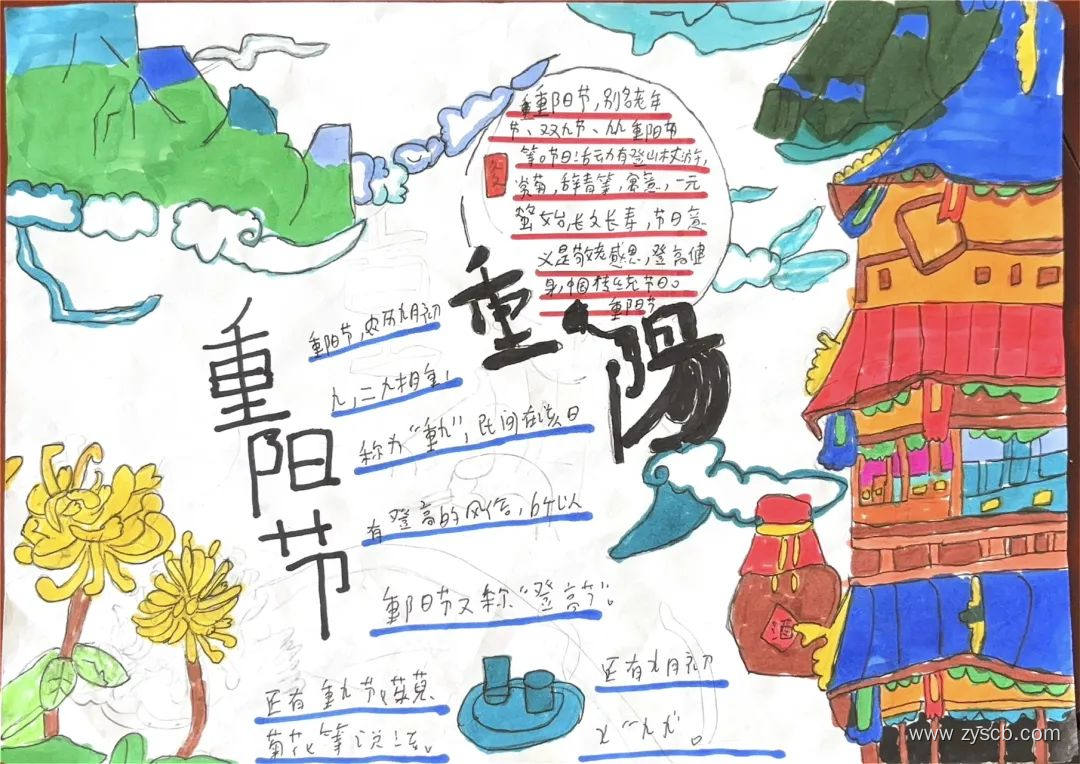 重重阳节，别名老年
节、双九节、九九重阳节
等。节日活动有登山
赏菊，辞青等，寓意，一元
肇始，长寿，节日意
义是敬老感恩，登高健
身，中国传统节日。
重阳节
重陽
重阳节
重阳节，农历九月初
九，二九相重，
称为“重九”，民间在该日
有登高的风俗，所以
重阳节又称“登高节”。
还有重九节、茱萸、
菊花等说法。
还有九月初
“九九”。
酒
www.zyscb.com